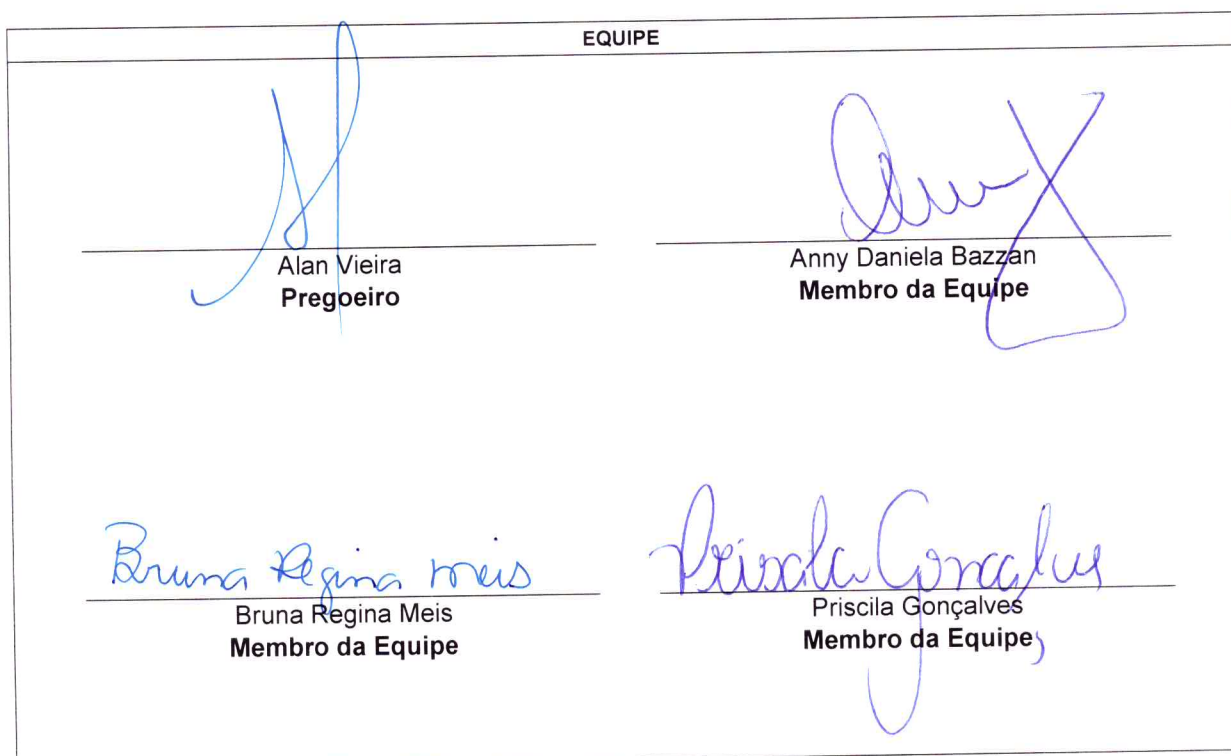 EQUIPE
Alan Vieira
Pregoeiro
Anny Daniela Bazzan
Membro da Equipe
Bruna Regina Meis
Bruna Regina Meis
Membro da Equipe
Priscila Gonçalves
Priscila Gonçalves
Membro da Equipe